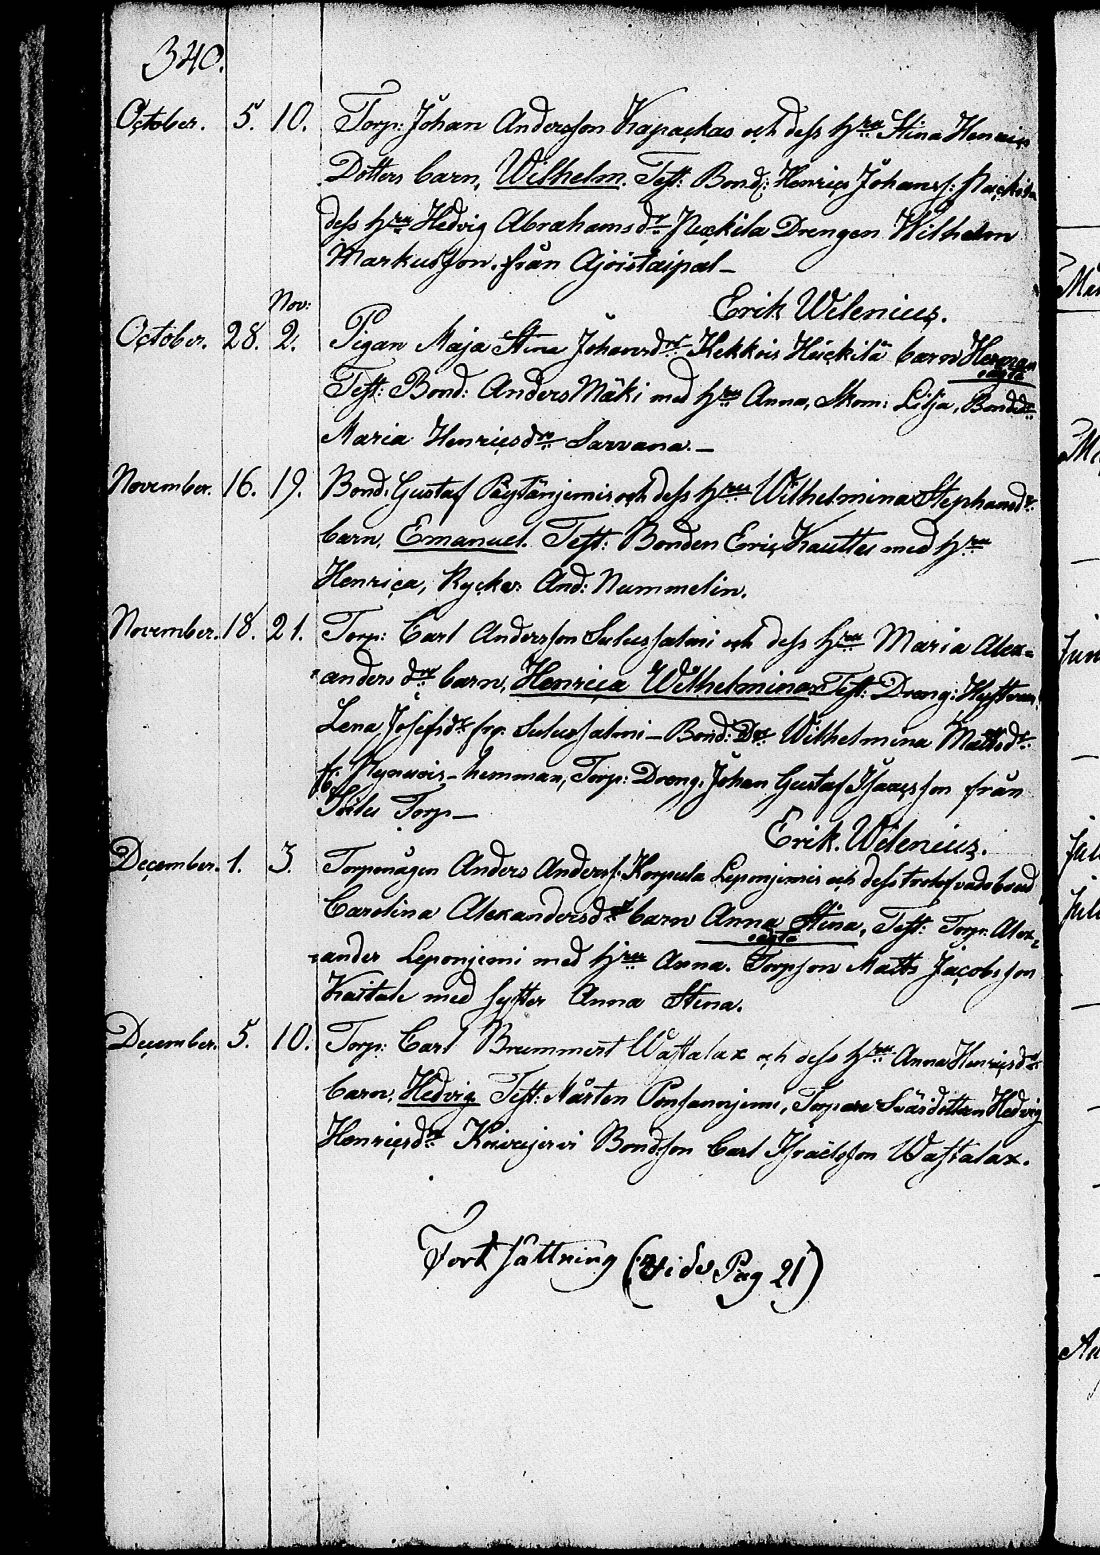 340.
October. 5. 10. Torp: Johan Andersson Kapackas och dess hru Stina Henrics
Dotters barn, Wilhelm. Test: Bond: Henrics Johanss:
dess hru Hedvig Abrahamsdr Drengen Wilhelm
Markusson från Ajoistaipal –
Erik Wilenius.
Nov:
October. 28. 2. Pigan Maja Stina Johansdr Kekkois Häckilä barn Herman
oägta
Test: Bond: Anders Mäki med hru Anna, Skom: Lilja, Bondedr
Maria Henricsdr Sarvana. –
November. 16. 19. Bond. Gustaf och dess hru Wilhelmina Stephansdr
barn, Emanuel. Test: Bonden Eric Kauttu med hru
Henrica, Ryckr: And: Nummelin.
November. 18. 21. Torp: Carl Andersson Sulussalmi och dess hru Maria Alex=
=anders dr barn, Henrica Wilhelmina. Test: Dreng:
Lena Josefsdr fr: Sulussalmi – Bond: Dr Wilhelmina Mattsdr
fr. hemman, Torp: Dreng. Johan Gustaf Isaacsson från
Torp –
Erik. Wilenius.
December. 1. 3. Torpmågen Anders Anderss: Korpula Leponjemis och dess trolofvade brud
Carolina Alexandersdr barn Anna Stina, Test: Torp: Alex=
oägta
=ander Leponjemi med hru Anna. Torpson Matts Jacobsson
Kaitale med syster Anna Stina.
December. 5. 10. Torp: Carl Brummert Wastalax och dess hru Anna Henricsdr
barn, Hedvig Test: Mårten Torpare Hedvig
Henricsdr Koivujervi Bondson Carl Israelsson Wastalax.
Fortsättning (vide Pag 21)